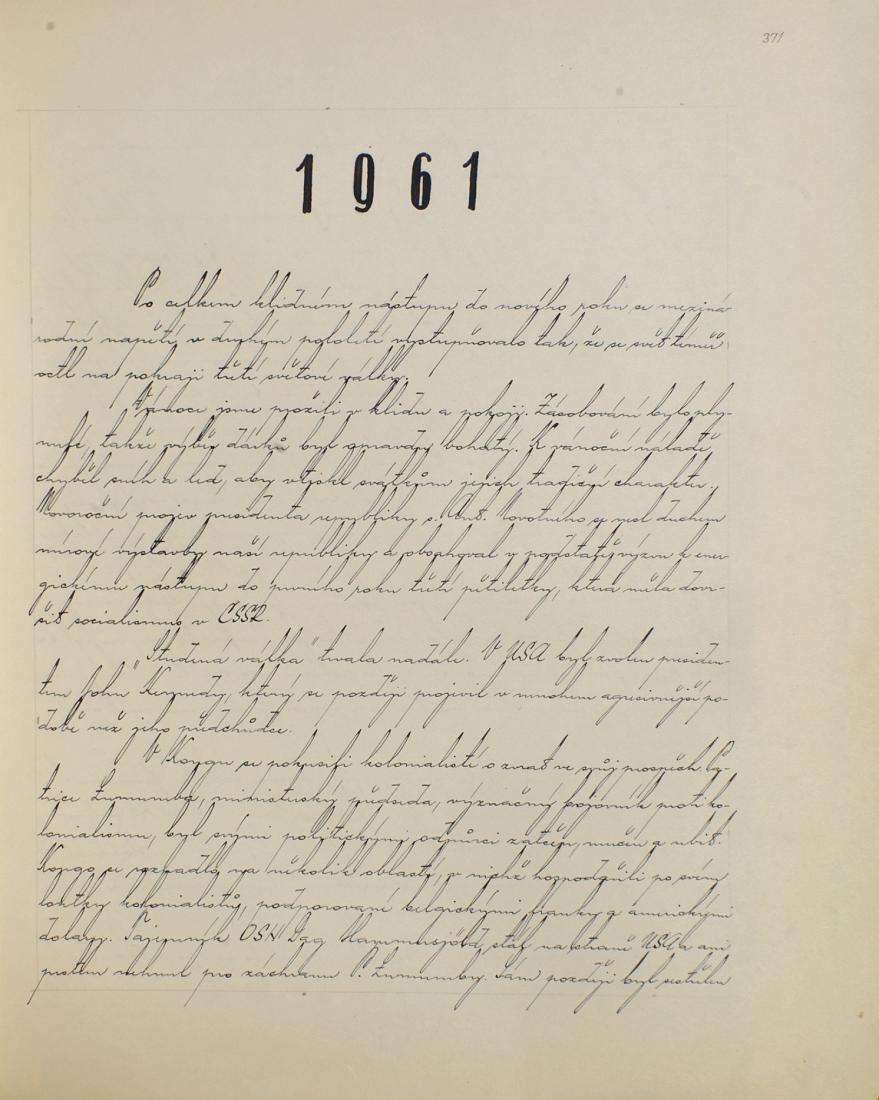 371
1961
Po celkem klidném nástupu do nového roku se meziná-
rodní napětí v druhém pololetí vystupňovalo tak, že se svět téměř
octl na pokraji třetí světové války.
Vánoce jsme prožili v klidu a pokoji. Zásobování bylo ply-
nulé, takže výběr dárků byl opravdu bohatý. K vánoční náladě
chyběl sníh a led, aby vtiskl svátkům jejich tradiční charakter.
Novoroční projev presidenta republiky s. Ant. Novotného se nesl duchem
mírové výstavby naší republiky a obsahoval v podstatě výzvu k ener-
gickému nástupu do prvního roku třetí pětiletky, která měla dovr-
šit socialismus v ČSSR.
„Studená válka" trvala nadále. V USA byl zvolen presiden-
tem John Kennedy, který se později projevil v mnohem agresivnější po-
době než jeho předchůdce.
V Kongu se pokusili kolonialisté o zvrat ve svůj prospěch. Pa-
trice Lumumba, ministerský předseda, význačný bojovník proti ko-
lonialismu, byl svými politickými odpůrci zatčen, mučen a ubit.
Kongo se rozpadlo na několik oblastí, v nichž hospodařili po svém
loutky kolonialistů, podporované belgickými franky a americkými
dolary. Tajemník OSN Dag Hammarsjöld stál na straně USA a ani
prstem nehnul pro záchranu P. Lumumby. Sám později byl sestřelen